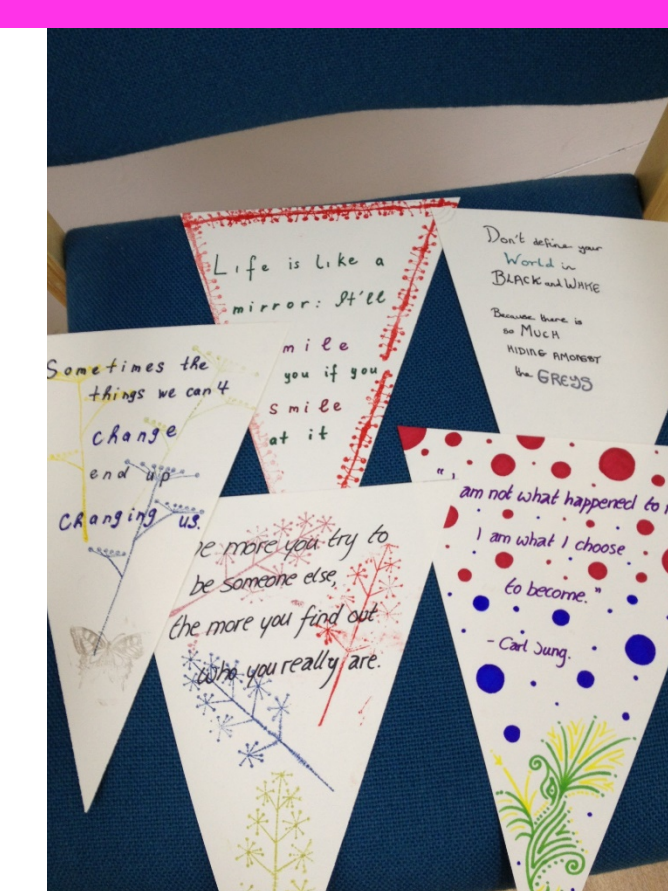 Life is like a
mirror: It'll
mile
you if you
smile
at it
Don't define your
World in
BLACK and WHITE
Because there is
so MUCH
HIDING AMONGST
the GREYS
Sometimes the
things we can't
change
end up
changing us.
e more you try to
be someone else,
the more you find out
who you really are.
" I am not what happened to
I am what I choose
to become."
- Carl Jung.